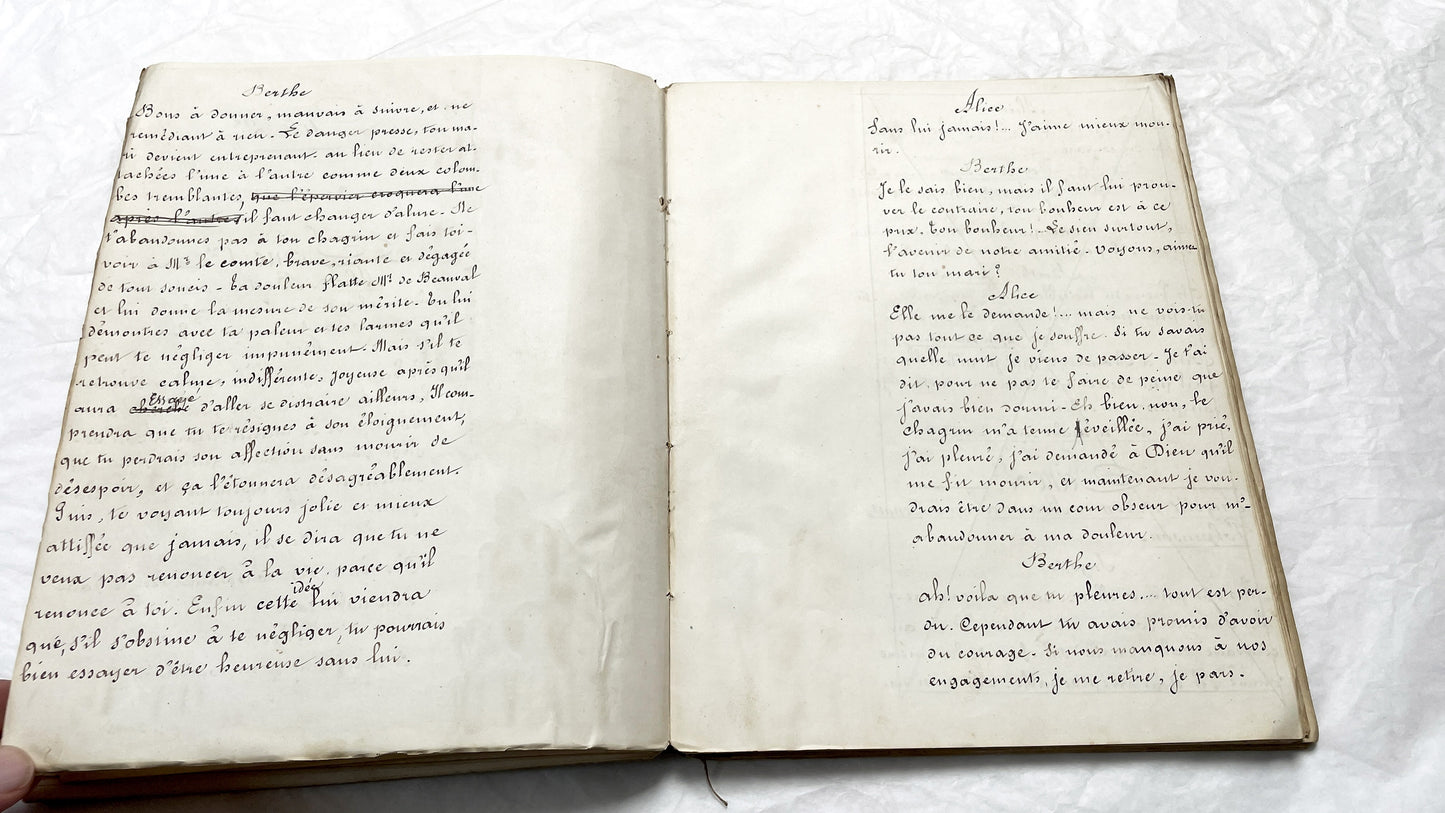 Berthe
Bons à donner, mauvais à suivre, et ne
remédiant à rien. Le danger presse, ton ma-
ri devient entreprenant. au lieu de rester at-
tachées l'une à l'autre comme deux colom-
bes tremblantes, que l'épervier croquera l'une
après l'autre, il faut changer d'alure. Ne
t'abandonnes pas à ton chagrin et fais toi-
voir à Mr le comte, brave, riante et dégagée
de tout soucis - Ta douleur flatte Mr de Beauval
et lui donne la mesure de son mérite. Tu lui
démontres avec ta paleur et tes larmes qu'il
peut te négliger impunément. Mais s'il te
retrouve calme, indifférente, joyeuse après qu'il
aura Essayé d'aller se distraire ailleurs, Il com-
prendra que tu te résignes à son éloignement,
que tu perdrais son affection sans mourir de
désespoir, et ça l'étonnera désagréablement.
Puis, te voyant toujours jolie et mieux
attifée que jamais, il se dira que tu ne
veux pas renoncer à la vie, parce qu'il
renonce à toi. Enfin cette idée lui viendra
que, s'il s'obstine à te négliger, tu pourrais
bien essayer d'être heureuse sans lui.
Alice
Sans lui jamais!... J'aime mieux mou-
rir.
Berthe
Je le sais bien, mais il faut lui prou-
ver le contraire, ton bonheur est à ce
prix. Ton bonheur! - Le sien surtout,
l'avenir de notre amitié. Voyons, aimes
tu ton mari?
Alice
Elle me le demande!... mais ne vois-tu
pas tout ce que je souffre. Si tu savais
quelle nuit je viens de passer - Je t'ai
dit, pour ne pas te faire de peine que
j'avais bien dormi - Eh bien, non, le
chagrin m'a tenue éveillée, j'ai prié,
j'ai pleuré, j'ai demandé à Dieu qu'il
me fit mourir, et maintenant je vou-
drais être dans un coin obscur pour m'-
abandonner à ma douleur.
Berthe
ah! voila que tu pleures.... tout est per-
du. Cependant tu avais promis d'avoir
du courage. Si nous manquons à nos
engagements, je me retire, je pars.